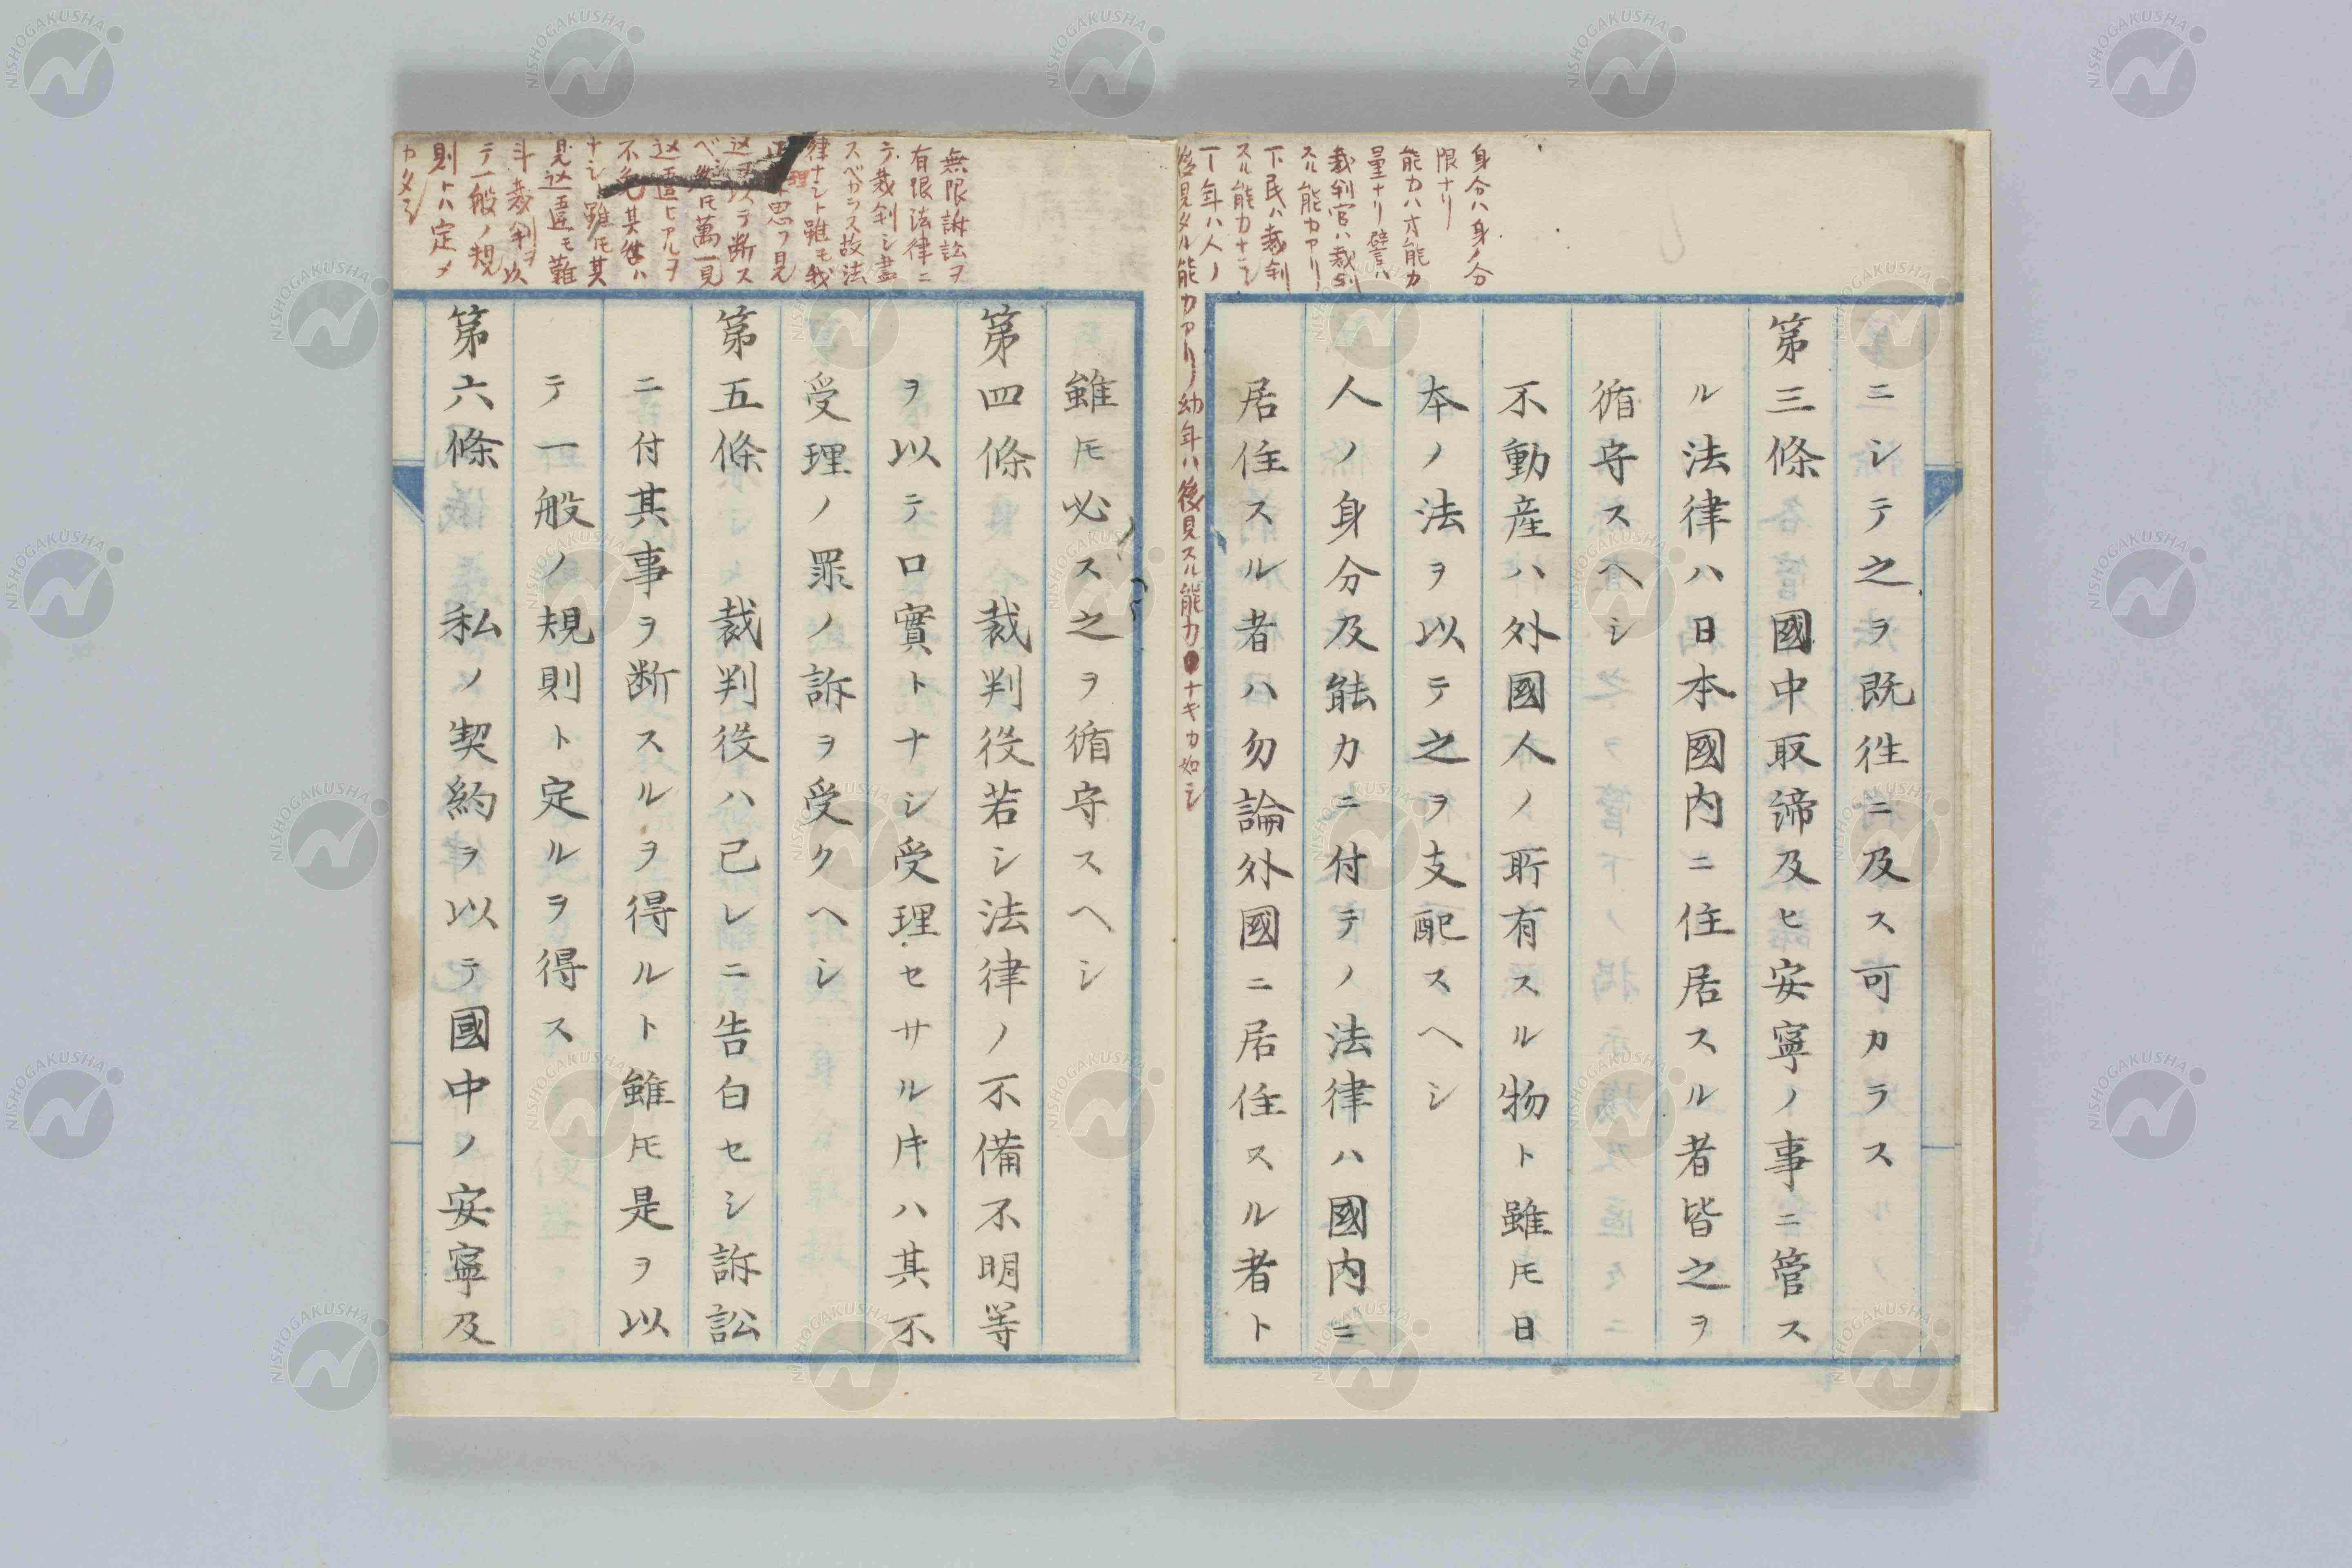 身分ハ身ノ分
限ナリ
能力ハ才能力
量ナリ譬ハ
裁判官ハ裁判
スル能力アリ
下民ハ裁判
スル能力ナシ
丁年ハ人ノ
後見タル能力アリ幼年ハ後見スル能力ナキカ如シ
ニシテ之ヲ既徃ニ及ス可カラス
第三條 國中取締及ヒ安寧ノ事ニ管ス
ル法律ハ日本國内ニ住居スル者皆之ヲ
循守スヘシ
不動産ハ外國人ノ所有スル物ト雖𪜈日
本ノ法ヲ以テ之ヲ支配スヘシ
人ノ身分及能力ニ付テノ法律ハ國内ニ
居住スル者ハ勿論外國ニ居住スル者ト
無限訴訟ヲ
有限法律ニ
テ裁判シ盡
スベカラス故法
律ナシト雖モ我
理ト思フ見
込ヲ以テ断ス
ベシ然𪜈萬一見
込違ヒアルヲ
不免其後ハ
ナシト雖𪜈其
見込違モ難
斗裁判ヲ以
テ一般ノ規
則トハ定メ
カタシ
雖𪜈必ス之ヲ循守スヘシ
第四條 裁判役若シ法律ノ不備不明等
ヲ以テ口實トナシ受理セサル𪜀ハ其不
受理ノ罪ノ訴ヲ受クヘシ
第五條 裁判役ハ己レニ告白セシ訴訟
ニ付其事ヲ断スルヲ得ルト雖𪜈是ヲ以
テ一般ノ規則ト定ルヲ得ス
第六條 私ノ契約ヲ以テ國中ノ安寧及
NISHOGAKUSHA